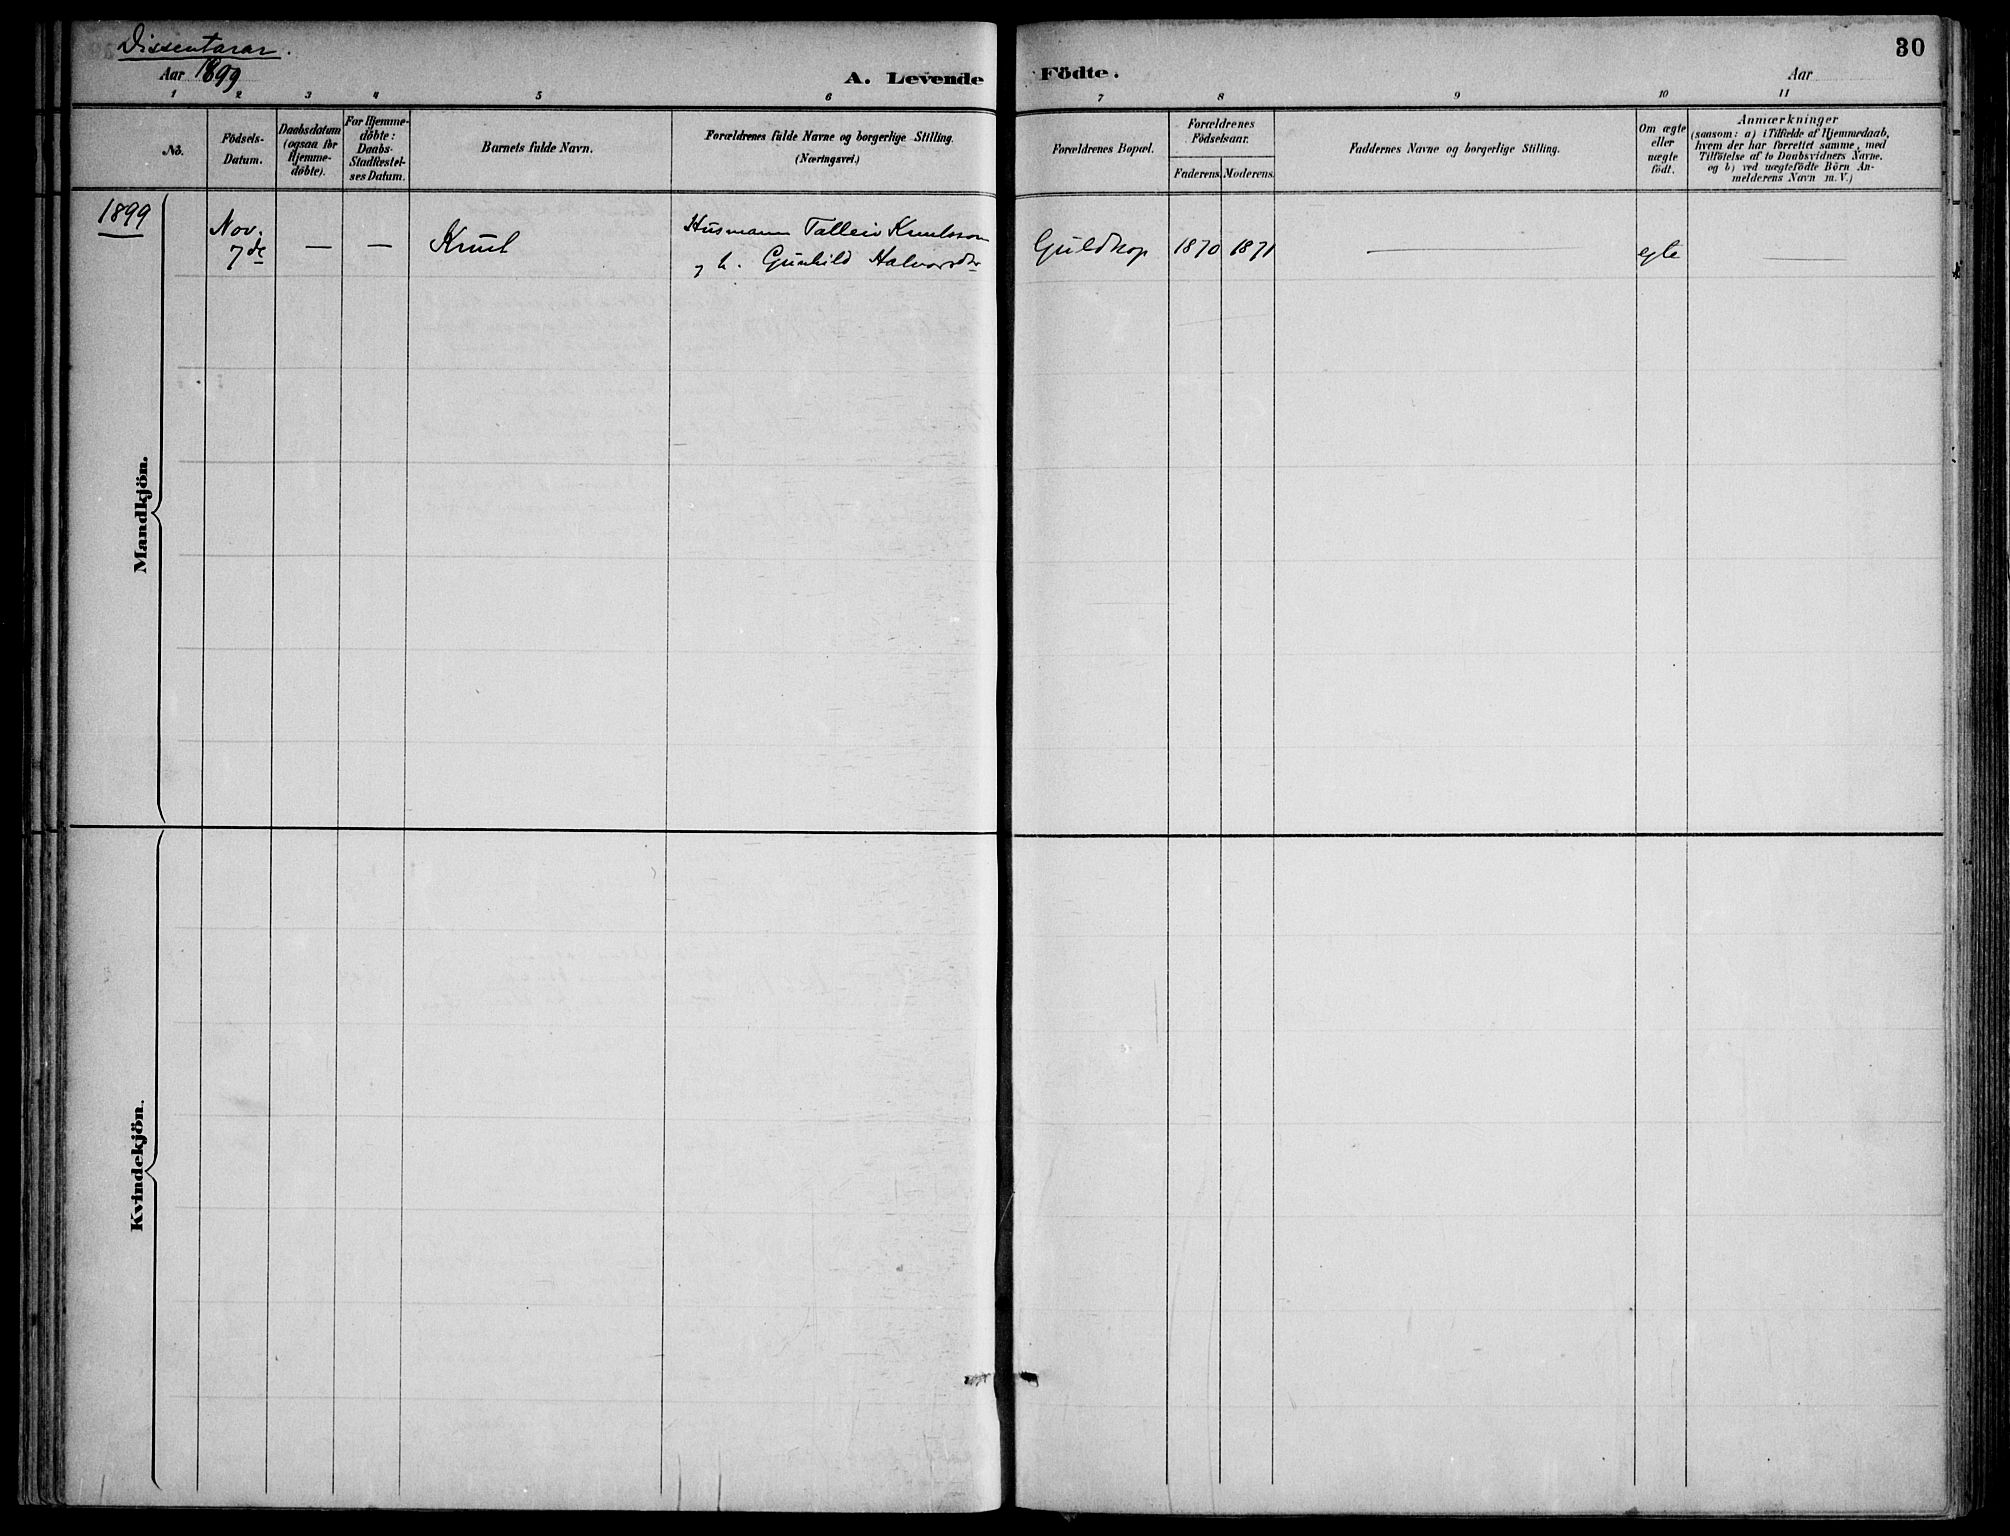 Dissentarar.
Aar 1899
A. Levende Födte.
Aar
30
1 2 3 4 5 6 7 8 9 10 11
No.
Födsels-
Datum.
Daabsdatum
(ogsaa for
Hjemme-
döbte).
For Hjemme-
döbte:
Daabs-
Stadfæstel-
ses Datum.
Barnets fulde Navn.
Forældrenes fulde Navne og borgerlige Stilling.
(Næringsvei.)
Forældrenes Bopæl.
Forældrenes
Födselsaar.
Faderens. Moderens.
Faddernes Navne og borgerlige Stilling.
Om ægte
eller
uægte
født.
Anmærkninger
(saasom: a) i Tilfælde af Hjemmedaab,
hvem der har forrettet samme, med
Tilföielse af to Daabsvidners Navne.
og b) ved uægtefödte Börn An-
melderens Navn m. V.)
1899
Nov.
7de — — Knut
Husmann Tallein Knutsson
o h. Gunhild Halvorsdtr
Guldhop 1870 1871 — egte —
Mandkjön.
Kvindekjön.